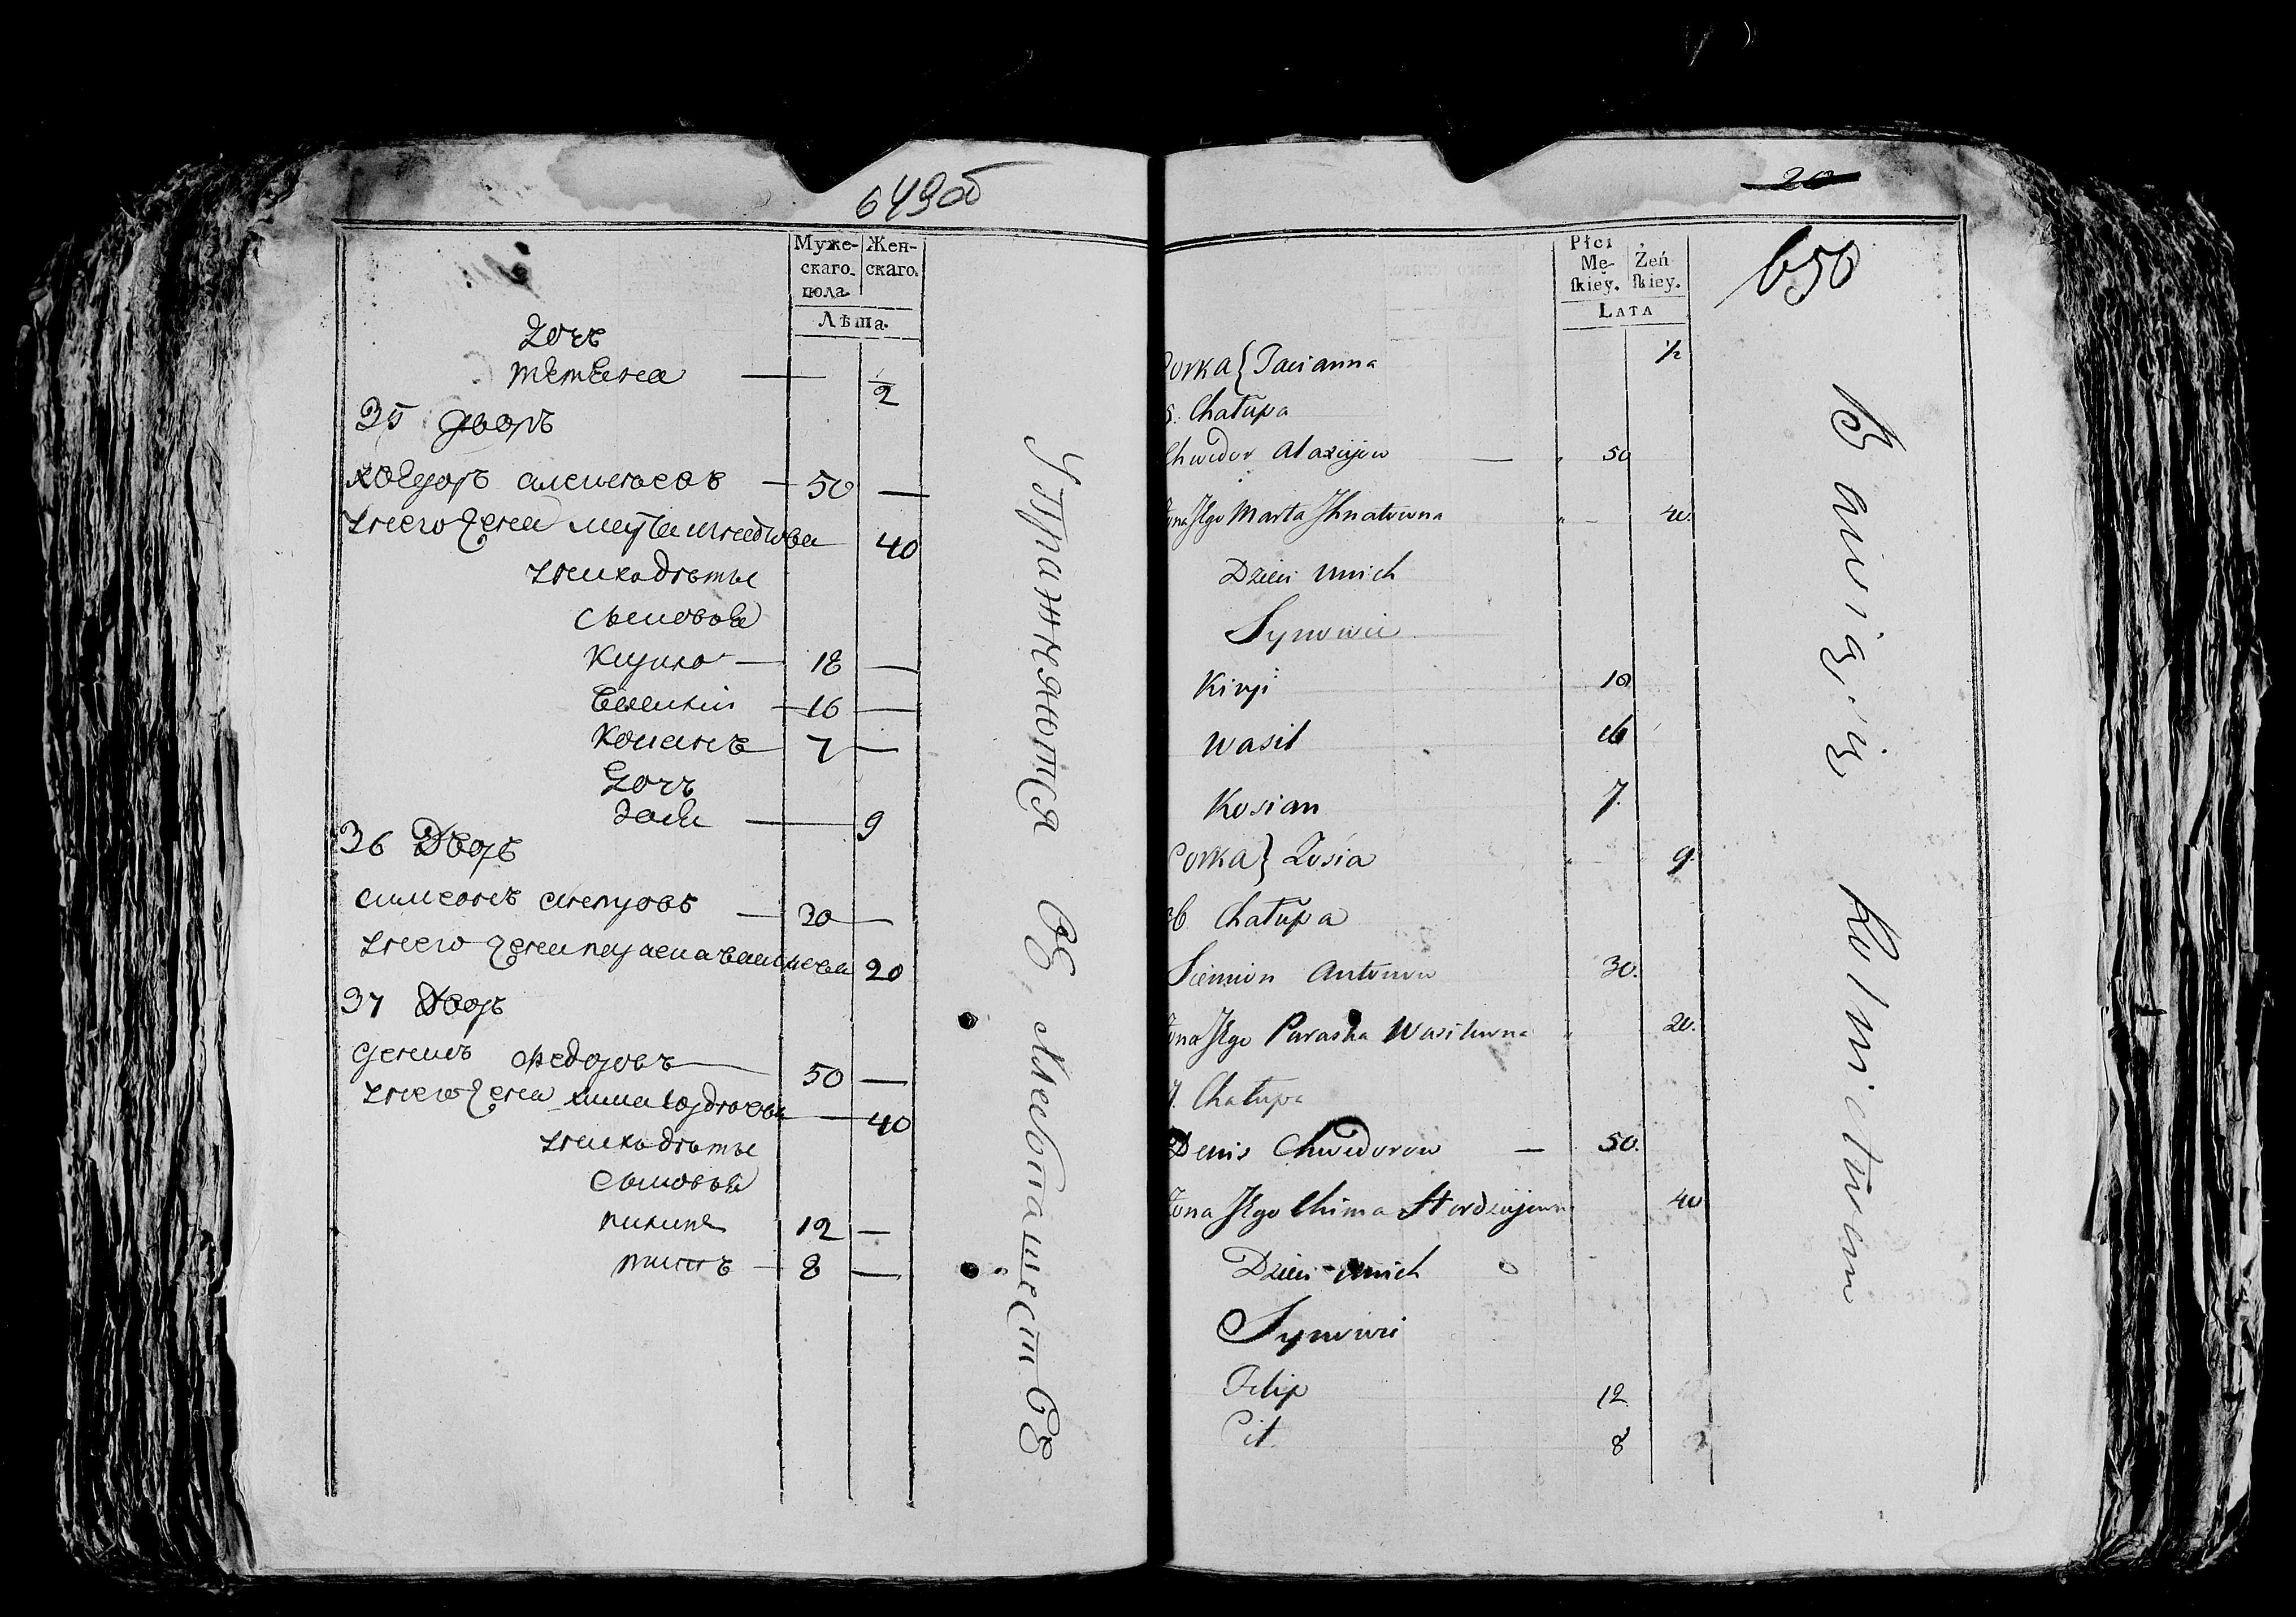 649 об
Муже-
скаго
пола
Жен-
скаго.
Лѣта.
дочь
татьяна — ½
35 дворъ
хведоръ алексеевъ — 50 —
унего жена марта игнатова 40
унихъ дѣти
сыновья
Кирило — 18 —
василий — 16 —
Касьянъ 7 —
дочь
зося — 9
36 Дворъ
симеонъ антоновъ — 30 —
унего жена параска васильева 20
37 Дворъ
денисъ федоровъ — 50 —
унего жена хима гордеева — 40
унихъ дѣти
сыновья
пилипъ 12 —
титъ — 8 —
Упражняются въ хлебопашествѣ
20
650
Płci
Mę-
ſkiey.
Żeń
ſkiey.
LATA
Corka } Tacianna ½
5. Chałupa
Chwedor Alaxiejow — 50
Żona Jego Marta Ihnatowna 40.
Dzieci unich
Synowie
Kirył 18
Wasil 16
Kosian 7.
Corka } Zosia 9
36 Chałupa
Siemion Antonow 30.
Żona Jego Paraska Wasilewna 20.
7. Chałupa
Denis Chwedorow — 50.
Żona Jego Chima Hordziejewna 40
Dzieci unich
Synowie
Filip 12
Cit 8
Bawią się Rolnictwem